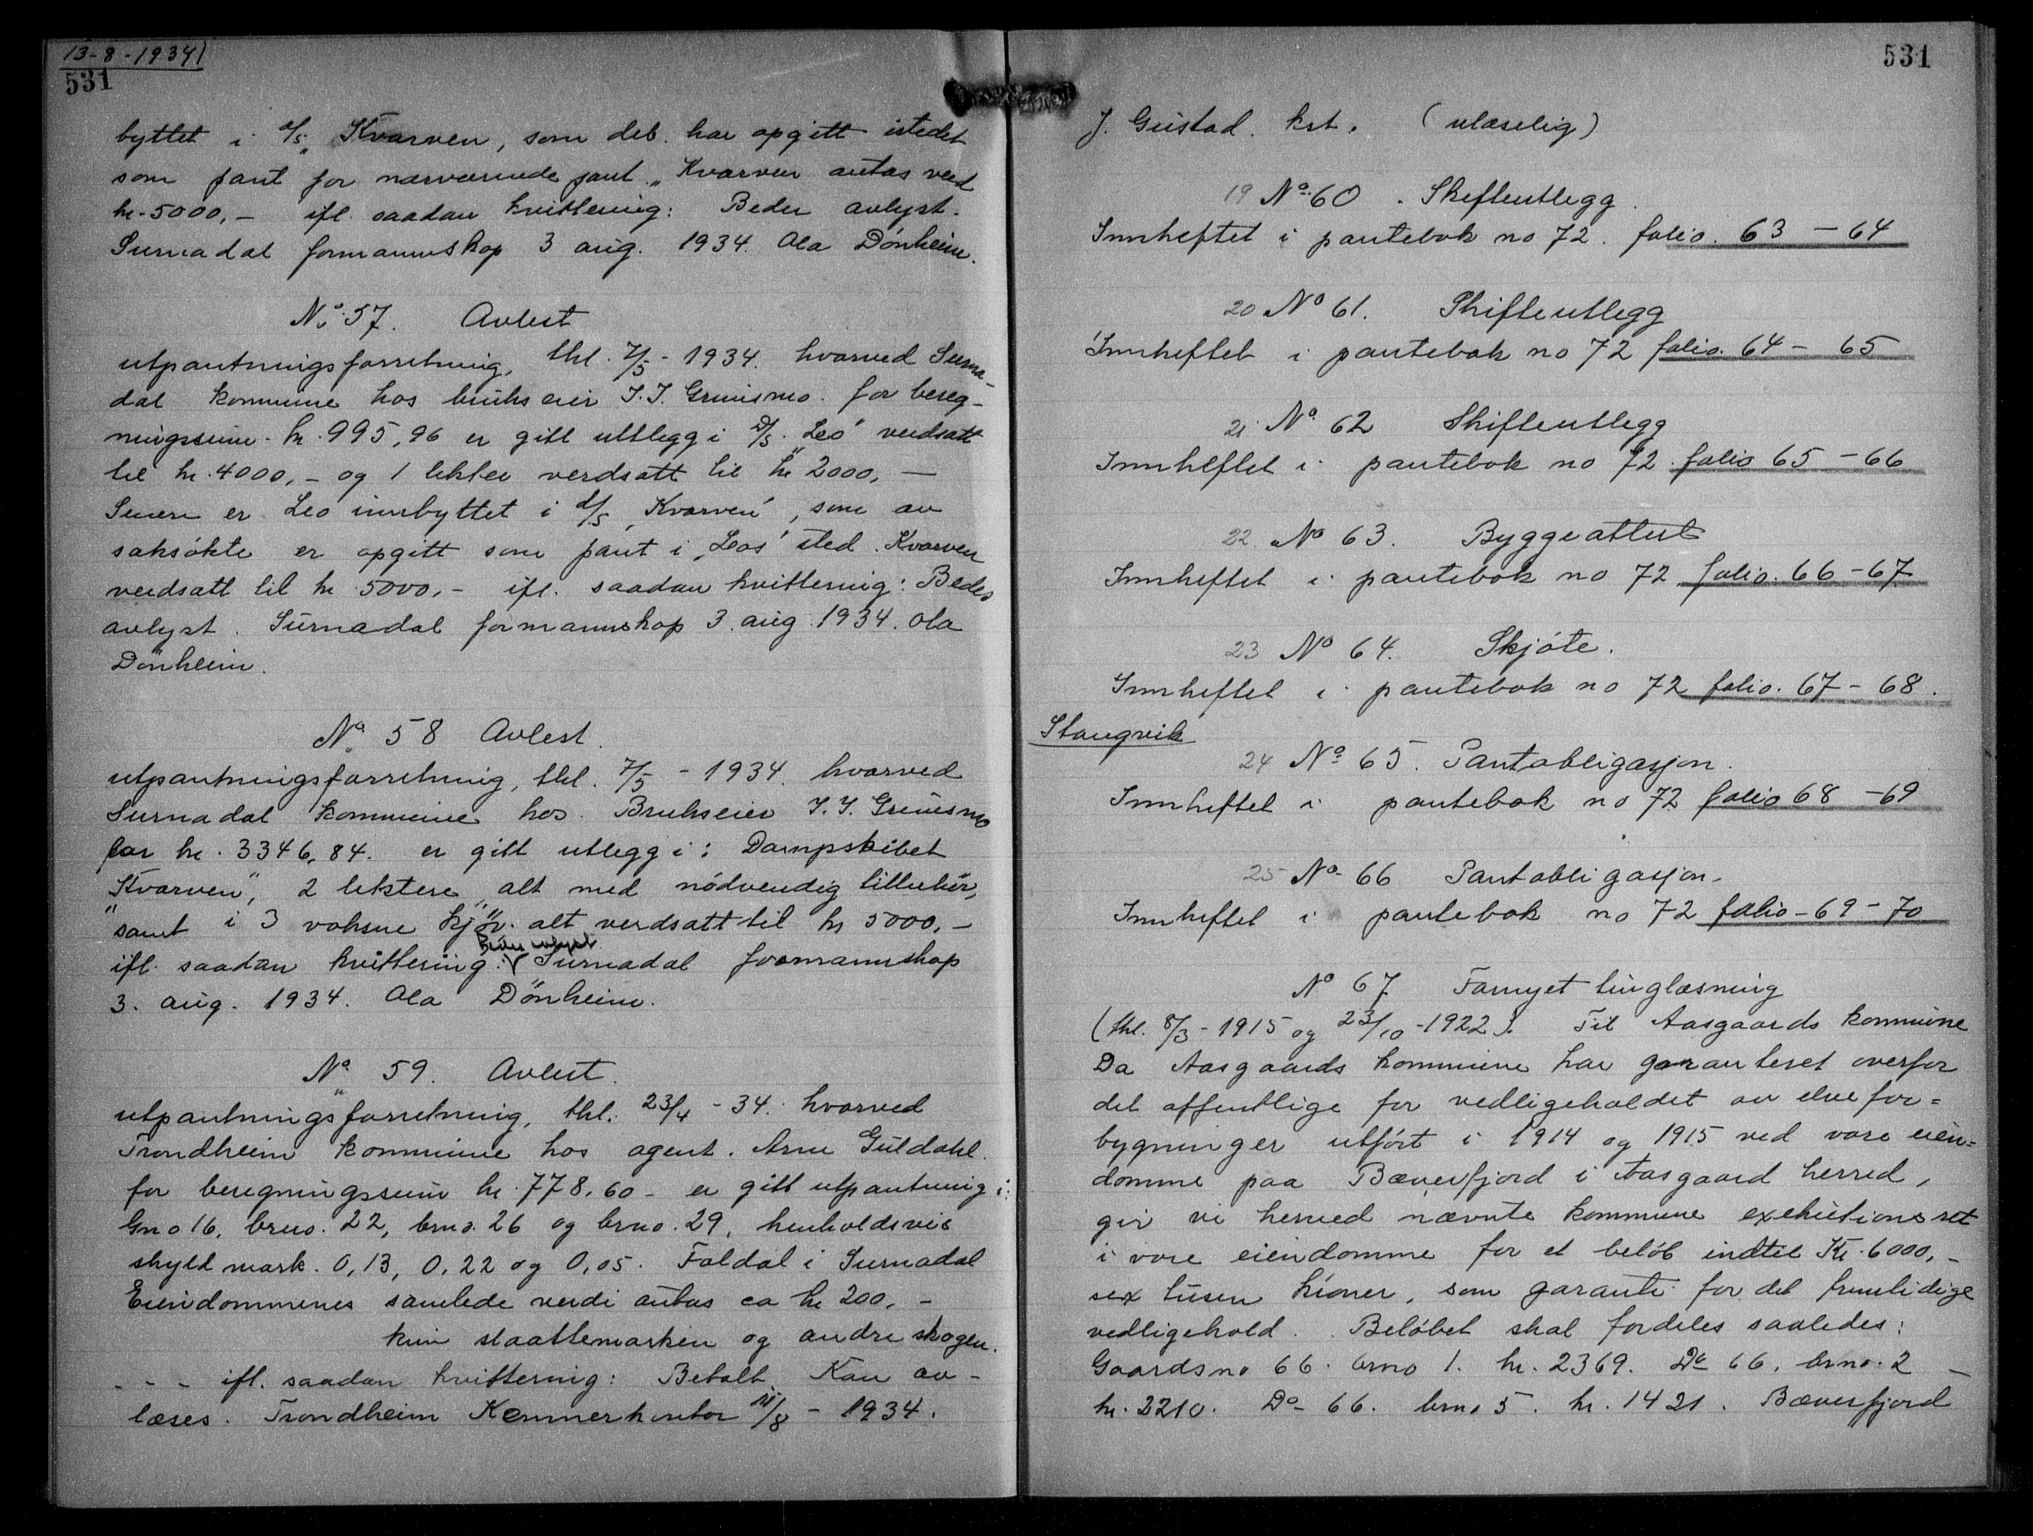 13-8-1934
531
byttet i d/s „Kvarven, som deb. har opgitt istedet
som pant for nærværende pant. „Kvarven antas verd
kr. 5000,- ifl. saadan kvittering: Bedes avlyst.
Surnadal formannskap 3 aug. 1934. Ola Dönheim.
No 57. Avlest
utpantningsforretning, thl. 7/5 - 1934. hvorved Surna-
dal kommune hos brukseier J. J. Grimsmo. for bereg-
ningssum. kr. 995,96 er gitt utlegg i D/S. „Leo" verdsatt
til kr. 4000,- og 1 lekter verdsatt til kr 2000,-
Senere er Leo innbyttet i d/s „Kvarven", som av
saksökte er opgitt som pant i „Leos" sted. Kvarven
verdsatt til kr 5000,- ifl. saadan kvittering: Bedes
avlyst. Surnadal formannskap 3. aug 1934. Ola
Dönheim.
No 58 Avlest.
utpantningsforretning, thl. 7/5 - 1934. hvorved
Surnadal kommune hos. Brukseier J. J. Grimsmo
for kr. 3346,84. er gitt utlegg i: Dampskibet
„Kvarven", 2 lektere, alt med nödvendig tillehör,
samt i 3 voksne kjör. alt verdsatt til kr 5000,-
Bedes avlyst
ifl. saadan kvittering: Surnadal formannskap
3. aug. 1934. Ola Dönheim.
No 59. Avlest.
utpantningsforretning, thl. 23/4 - 34. hvorved
Trondheim kommune hos agent. Arne Guldahl.
for beregningssum kr. 778,60 - er gitt utpantning i:
Gno 16, brno. 22, brno. 26 og brno. 29, henholdsvis
skyld mark. 0,13, 0,22 og 0,05. Foldal i Surnadal
Eiendommenes samlede verdi antas ca kr 200,-
kun slaattemarken og andre skogen.
- - - ifl. saadan kvittering: Betalt. Kan av-
læses. Trondheim Kemnerkontor 11/8 - 1934.
531
J. Gustad. kst. (ulæselig)
19 No 60. Skifteutlegg.
Innheftet i pantebok no 72. folio. 63 - 64
20 No 61. Skifteutlegg
Innheftet i pantebok no 72 folio. 64 - 65
21 No 62 Skifteutlegg
Innheftet i pantebok no 72. folio 65 - 66
22 No 63. Byggeattest
Innheftet i pantebok no 72 folio. 66 - 67
23 No 64. Skjöte.
Innheftet i pantebok no 72 folio. 67 - 68.
Stangvik
24 No 65. Pantobligasjon.
Innheftet i pantebok no 72 folio 68 - 69
25 No 66 Pantobligasjon.
Innheftet i pantebok no 72 folio - 69 - 70
No 67 Fornyet tinglæsning
(thl. 8/3 - 1915 og 23/10 - 1922). Til Aasgaards kommune
Da Aasgaards kommune har garanteret overfor
det offentlige for vedligeholdet av elvefor=
bygninger utfört i 1914 og 1915 ved vore eien=
domme paa Bæverfjord i Aasgaard herred,
gir vi herved nævnte kommune exekutionsret
i vore eiendomme for et belöb indtil Kr. 6000,-
sex tusen kroner, som garanti for det fremtidige
vedligehold. Belöbet skal fordeles saaledes:
Gaardsno 66. brno 1. kr. 2369. Do 66. brno. 2 -
kr. 2210. Do 66. brno 5. kr. 1421. Bæverfjord